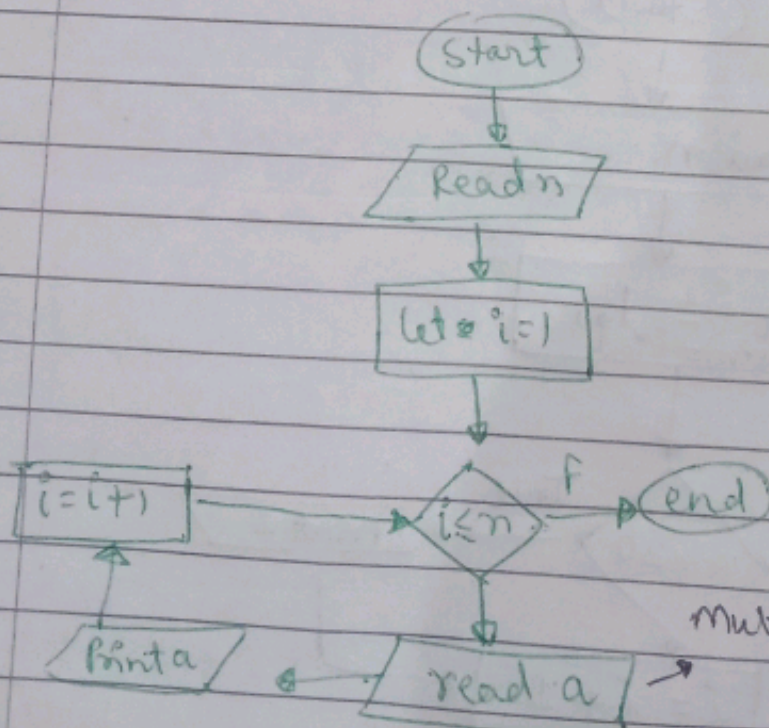 Start
Read n
let i=1
i=i+1
i≤n
F
end
Print a
read a